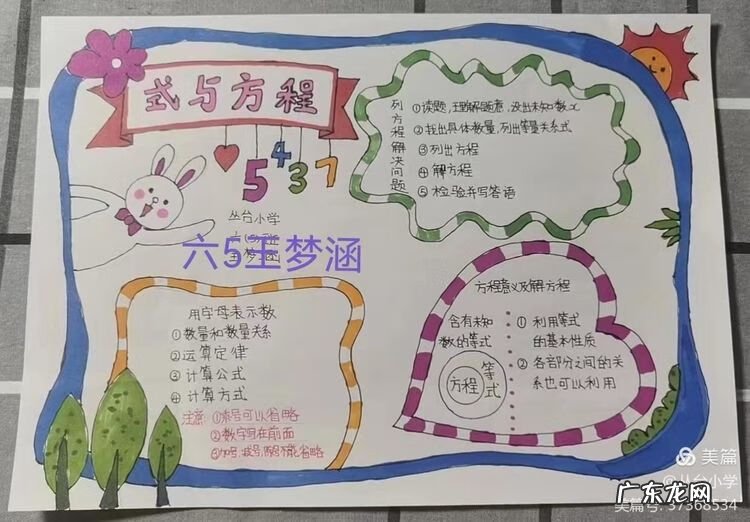 式与方程
5 4 3 7
丛台小学
六5王梦涵
列方程解决问题
①读题,理解题意,设出未知数x
②找出具体数量,列出等量关系式
③列出方程
④解方程
⑤检验并写答语
用字母表示数
①数量和数量关系
②运算定律
③计算公式
④计算方式
注意:①乘号可以省略
②数字写在前面
③加号、减号、除号不能省略
方程意义及解方程
含有未知
数的等式
方程
等式
①利用等式
的基本性质
②各部分之间的关
系也可以利用
美篇
@丛台小学
广东龙网
美篇号: 37368534